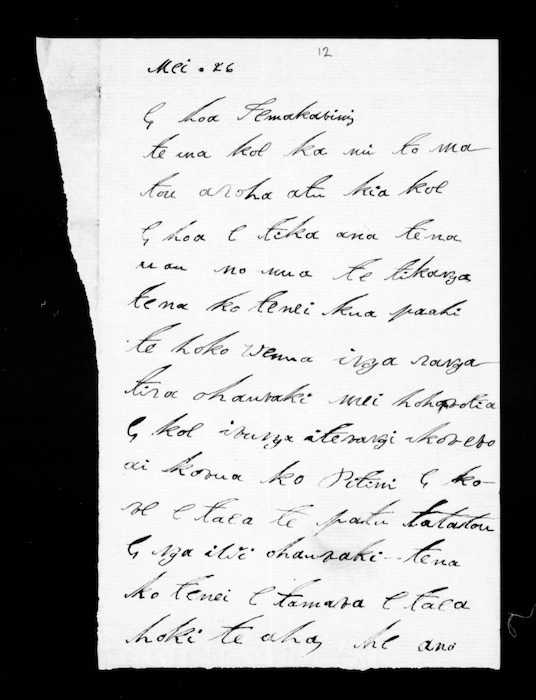 12
Mei . 26
E hoa Temakarini
tena koe ka nui to ma
tou aroha atu kia koe
E hoa e tika ana tena
no mua te tikanga
tena ko tenei kua paahi
te hoko wenua inga ranga
tira ohauraki mei hohorotia
E koe irunga iterangi ikorero
ai korua ko Pitini E ko
re e taea te patu tatatou
E nga iwi ohauraki - tena
ko tenei E tamara E taea
hoki te aha, he ano